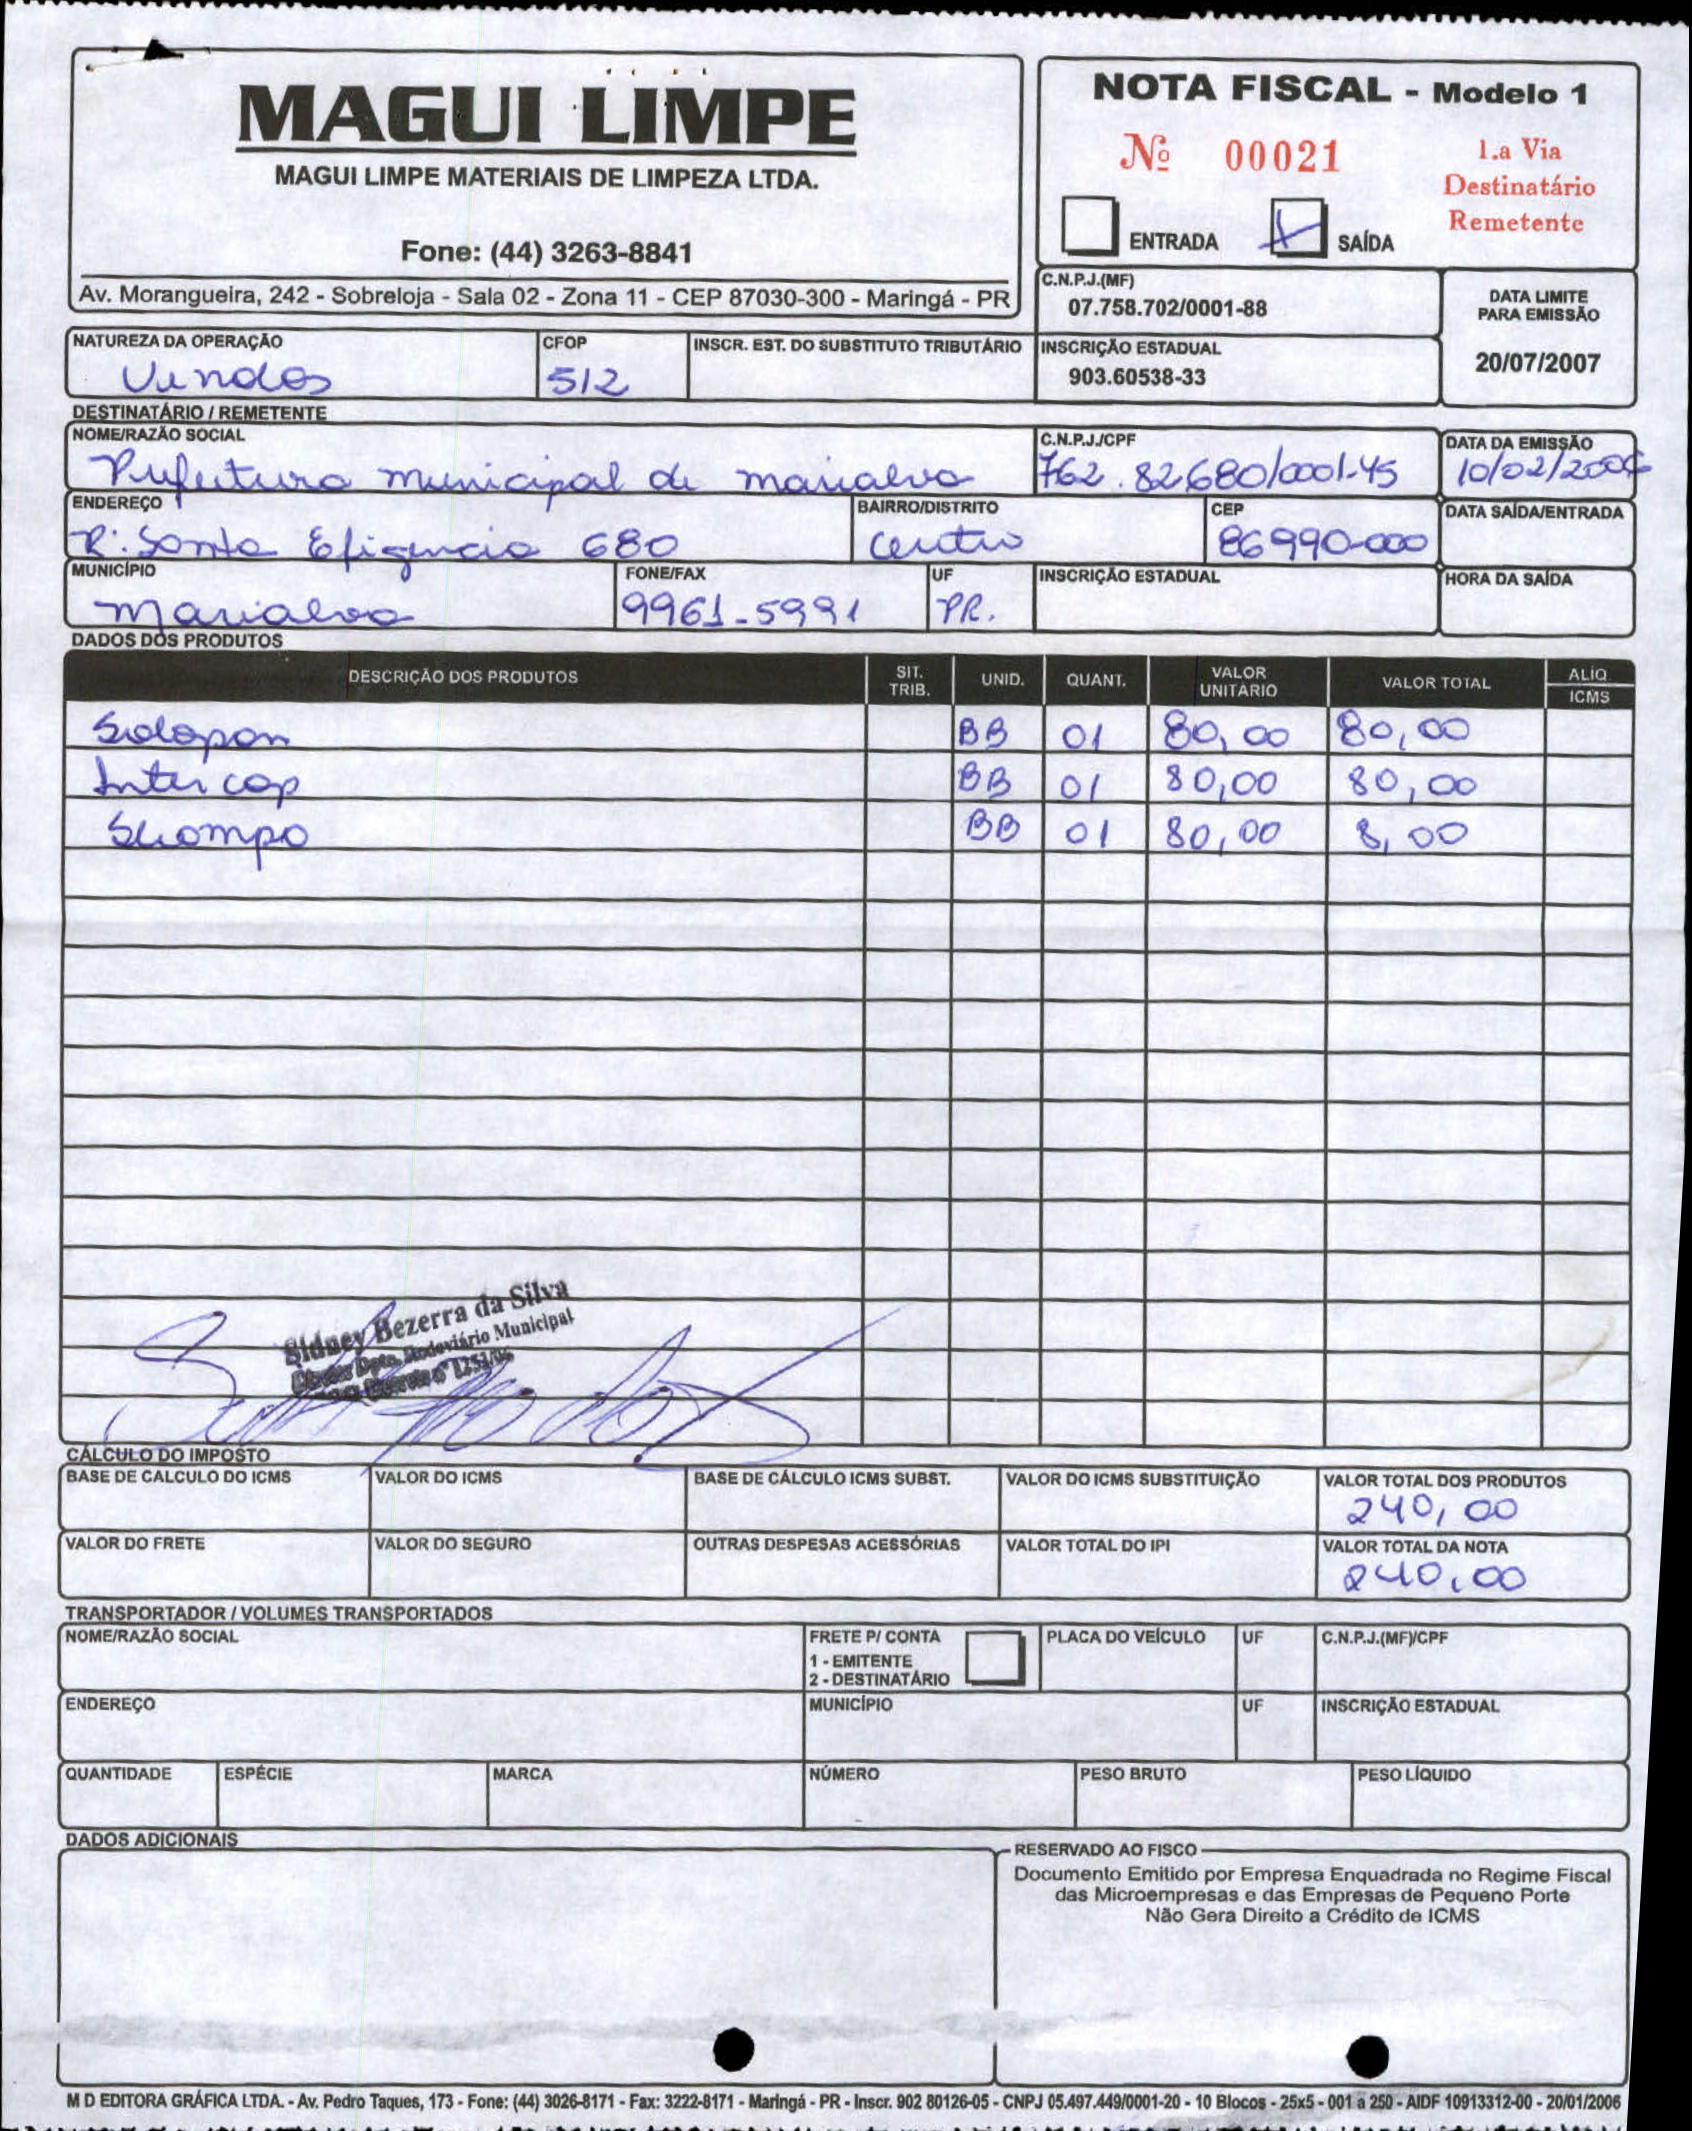 MAGUI LIMPE
MAGUI LIMPE MATERIAIS DE LIMPEZA LTDA.
Fone: (44) 3263-8841
Av. Morangueira, 242 - Sobreloja - Sala 02 - Zona 11 - CEP 87030-300 - Maringá - PR
NOTA FISCAL - Modelo 1
Nº 00021
1.a Via
Destinatário
Remetente
ENTRADA
SAÍDA
C.N.P.J.(MF)
07.758.702/0001-88
DATA LIMITE
PARA EMISSÃO
20/07/2007
NATUREZA DA OPERAÇÃO
Vendas
CFOP
512
INSCR. EST. DO SUBSTITUTO TRIBUTÁRIO
INSCRIÇÃO ESTADUAL
903.60538-33
DESTINATÁRIO / REMETENTE
NOME/RAZÃO SOCIAL
Prefeitura municipal de marialva
C.N.P.J./CPF
762.82680/0001-45
DATA DA EMISSÃO
10/02/2006
ENDEREÇO
R: Santa Efigencia 680
BAIRRO/DISTRITO
Centro
CEP
86990-000
DATA SAÍDA/ENTRADA
MUNICÍPIO
marialva
FONE/FAX
9961-5991
UF
PR.
INSCRIÇÃO ESTADUAL
HORA DA SAÍDA
DADOS DOS PRODUTOS
DESCRIÇÃO DOS PRODUTOS SIT. TRIB. UNID. QUANT. VALOR UNITÁRIO VALOR TOTAL ALÍQ ICMS
BB 01 80,00 80,00
Inter cap BB 01 80,00 80,00
BB 01 80,00 8,00
Sidney Bezerra da Silva
Dpto. Rodoviário Municipal
CÁLCULO DO IMPOSTO
BASE DE CALCULO DO ICMS
VALOR DO ICMS
BASE DE CÁLCULO ICMS SUBST.
VALOR DO ICMS SUBSTITUIÇÃO
VALOR TOTAL DOS PRODUTOS
240,00
VALOR DO FRETE
VALOR DO SEGURO
OUTRAS DESPESAS ACESSÓRIAS
VALOR TOTAL DO IPI
VALOR TOTAL DA NOTA
240,00
TRANSPORTADOR / VOLUMES TRANSPORTADOS
NOME/RAZÃO SOCIAL
FRETE P/ CONTA
1 - EMITENTE
2 - DESTINATÁRIO
PLACA DO VEÍCULO
UF
C.N.P.J.(MF)/CPF
ENDEREÇO
MUNICÍPIO
UF
INSCRIÇÃO ESTADUAL
QUANTIDADE
ESPÉCIE
MARCA
NÚMERO
PESO BRUTO
PESO LÍQUIDO
DADOS ADICIONAIS
RESERVADO AO FISCO
Documento Emitido por Empresa Enquadrada no Regime Fiscal
das Microempresas e das Empresas de Pequeno Porte
Não Gera Direito a Crédito de ICMS
M D EDITORA GRÁFICA LTDA. - Av. Pedro Taques, 173 - Fone: (44) 3026-8171 - Fax: 3222-8171 - Maringá - PR - Inscr. 902 80126-05 - CNPJ 05.497.449/0001-20 - 10 Blocos - 25x5 - 001 a 250 - AIDF 10913312-00 - 20/01/2006